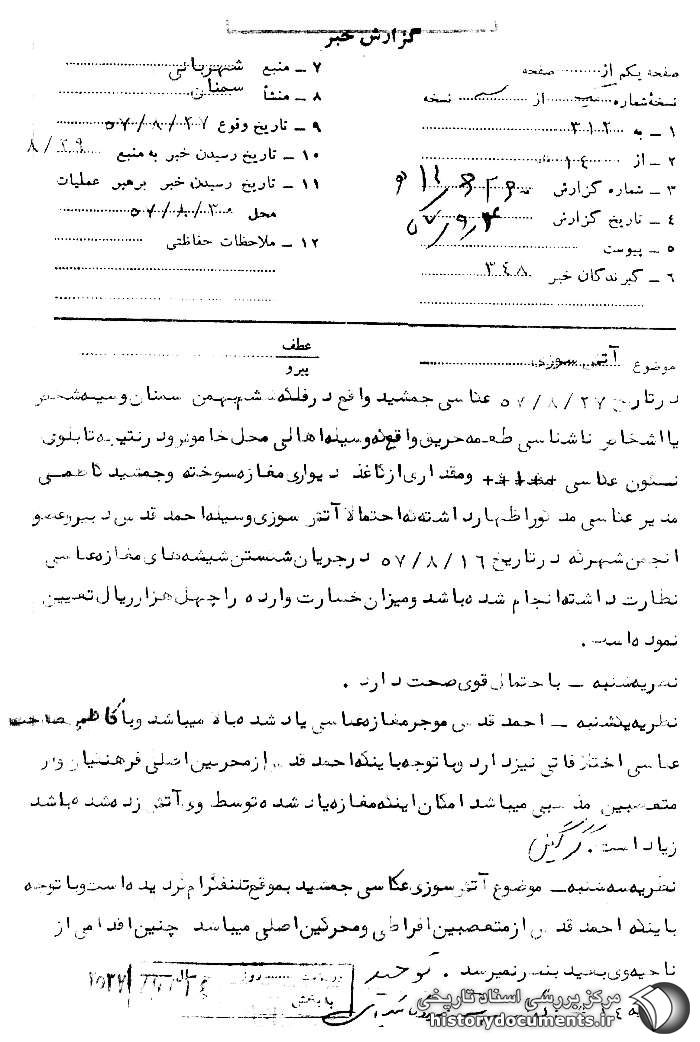 گزارش خبر
صفحه یکم از ........ صفحه
نسخه شماره ........ از ........ نسخه
۱ ـ به ۳۱۲
۲ ـ از
۳ ـ شماره گزارش
۴ ـ تاریخ گزارش
۵ ـ پیوست
۶ ـ گیرندگان خبر ۳۴۸
۷ ـ منبع شهربانی
۸ ـ منشأ سمنان
۹ ـ تاریخ وقوع ۵۷/۸/۲۷
۱۰ ـ تاریخ رسیدن خبر به منبع ۸/۲۹
۱۱ ـ تاریخ رسیدن خبر برهبر عملیات
محل ۵۷/۸/۳۰
۱۲ ـ ملاحظات حفاظتی
موضوع آتش سوزی
عطف
پیرو
درتاریخ ۵۷/۸/۲۷ عکاسی جمشید واقع درفلکه ششم بهمن سمنان وسیله شخص
یا اشخاص ناشناسی طعمه حریق واقع که وسیله اهالی محل خاموش ودرنتیجه تابلوی
نئون عکاسی ومقداری ازکاغذ دیواری مغازه سوخته وجمشید کاظمی
مدیر عکاسی مذکور اظهار داشته که احتمالا آتش سوزی وسیله احمد قدس دبیر وعضو
انجمن شهر که درتاریخ ۵۷/۸/۱۶ درجریان شکستن شیشه های مغازه عکاسی
نظارت داشته انجام شده باشد ومیزان خسارت وارده را چهل هزارریال تعیین
نموده است .
نظریه شنبه ـ با احتمال قوی صحت دارد .
نظریه یکشنبه ـ احمد قدس موجر مغازه عکاسی یاد شده بالا میباشد وبا کاظمی صاحب
عکاسی اختلافاتی نیز دارد وبا توجه باینکه احمد قدس از محرکین اصلی فرهنگیان و از
متعصبین مذهبی میباشد امکان اینکه مغازه یاد شده توسط وی آتش زده شده باشد
زیاد است .
نظریه سه شنبه ـ موضوع آتش سوزی عکاسی جمشید بموقع تلفنگرام گردیده است وبا توجه
باینکه احمد قدس از متعصبین افراطی ومحرکین اصلی میباشد چنین اقدامی از
ناحیه وی بعید بنظر نمیرسد . توحید
بایگانی بخش
مرکز بررسی اسناد تاریخی
historydocuments.ir